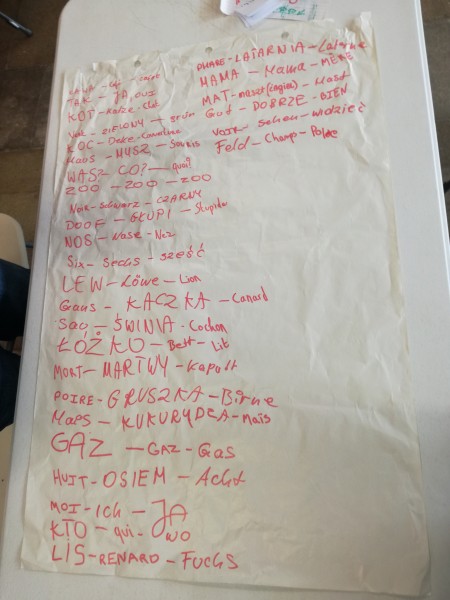 TAK - JA, OUI
KOT - Katze - Chat
ZIELONY - GRÜN
KOC - Decke - Couverture
Maus - MYSZ - Souris
WAS? CO? - quoi?
ZOO - ZOO - ZOO
Noir - Schwarz - CZARNY
DOOF - GŁUPI - Stupide
NOS - Nase - Nez
Six - Sechs - SZEŚĆ
LEW - Löwe - Lion
Gans - KACZKA - Canard
Sau - ŚWINIA - Cochon
ŁÓŻKO - Bett - Lit
MORT - MARTWY - Kaputt
POIRE - GRUSZKA - Birne
Maps - KUKURYDZA - Maïs
GAZ - GAZ - Gas
HUIT - OSIEM - Acht
MOI - ich - JA
KTO - qui - WO
LIS - RENARD - FUCHS
PHARE - LATARNIA - Laterne
MAMA - Mama - MÈRE
MAT - maszt (żagiel) - Mast
Gut - DOBRZE - BIEN
VOIR - Sehen - widzieć
Feld - Champ - Pole